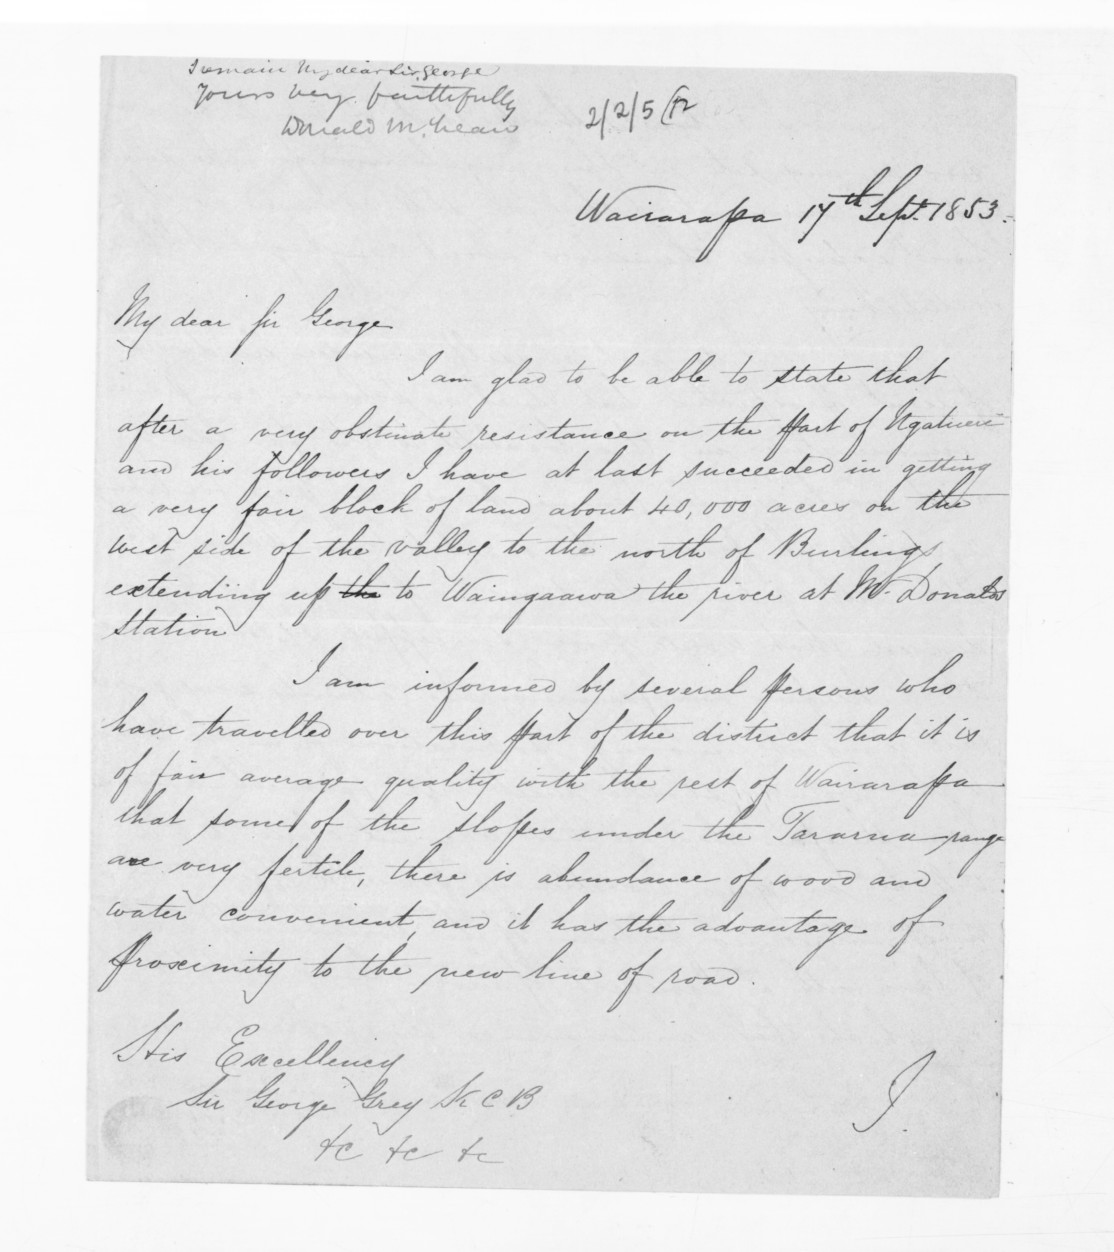 I remain My dear Sir George
Yours very faithfully
Donald McLean
2/2/5
Wairarapa 17th Sept. 1853.
My dear Sir George
I am glad to be able to state that
after a very obstinate resistance on the part of Ngatuere
and his followers I have at last succeeded in getting
a very fair block of land about 40,000 acres on the
west side of the valley to the north of Burlings
extendiing up the to Waingaawa the river at McDonalds
station
I am informed by several persons who
have travelled over this part of the district that it is
of fair average quality with the rest of Wairarapa
that some of the slopes under the Tararua range
are very fertile, there is abundance of wood and
water convenient, and it has the advantage of
proximity to the new line of road.
His Excellency
Sir George Grey K C B
&c &c &c
I.